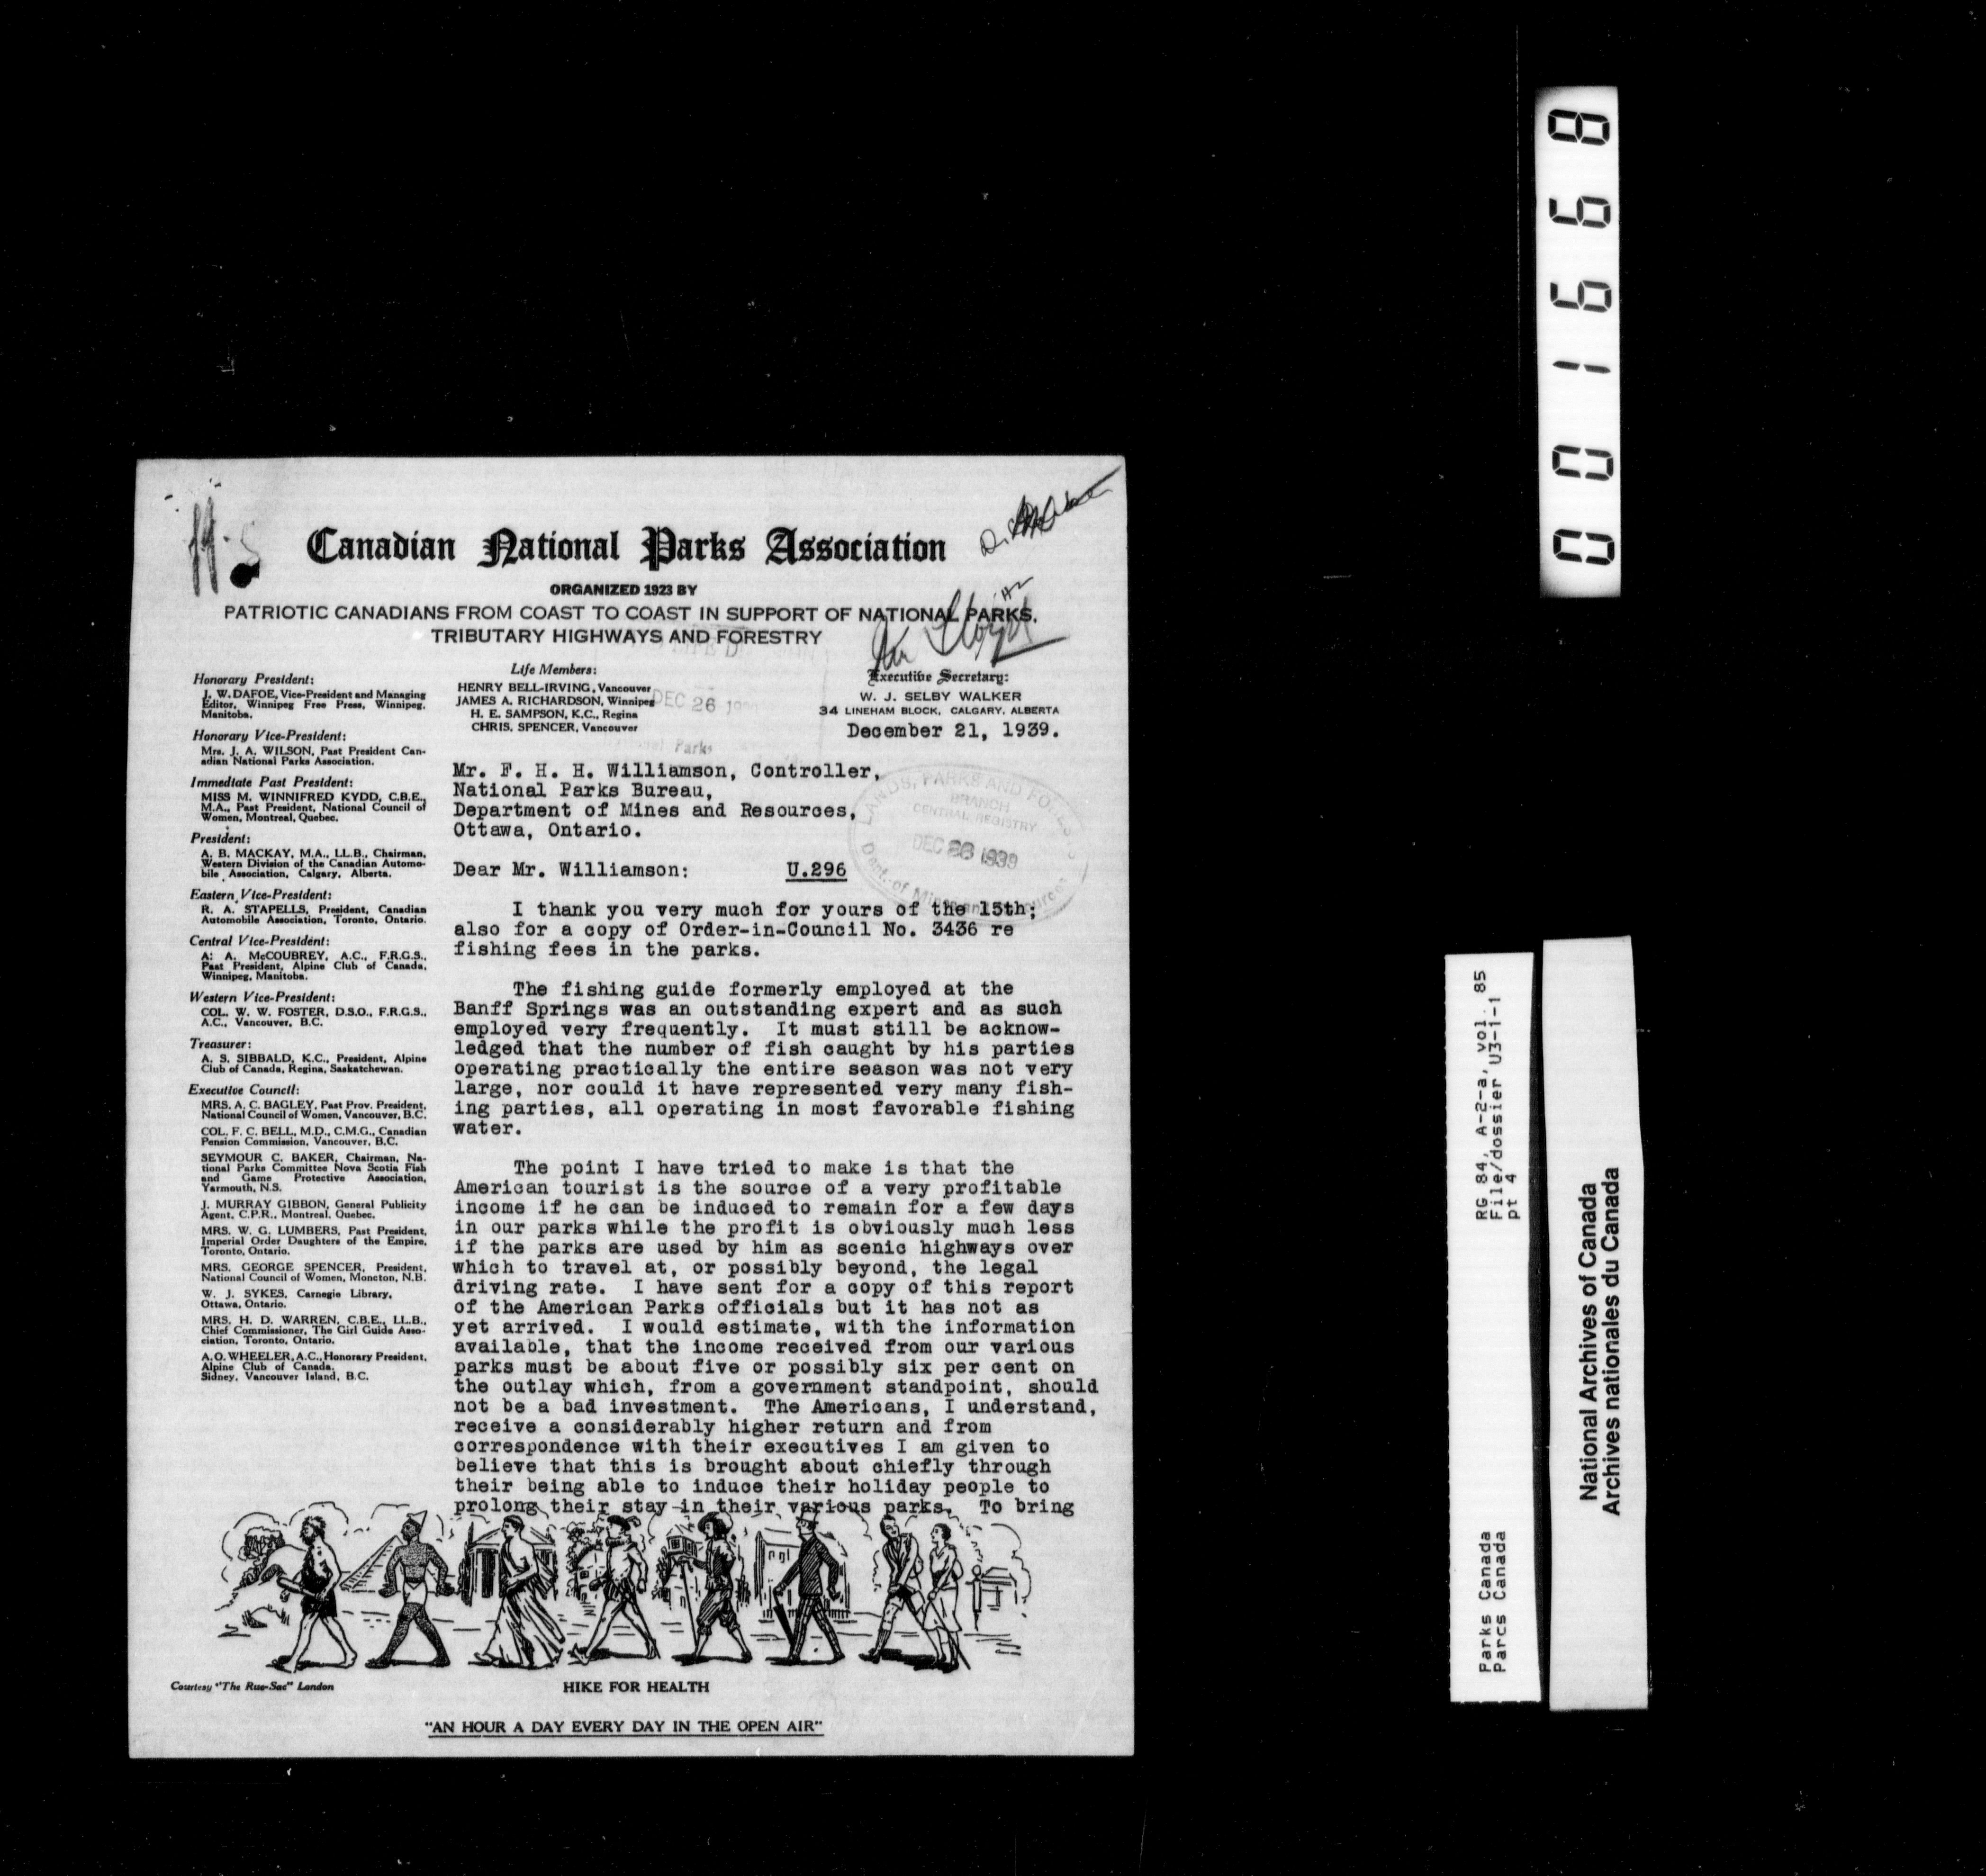 Canadian National Parks Association
ORGANIZED 1923 BY
PATRIOTIC CANADIANS FROM COAST TO COAST IN SUPPORT OF NATIONAL PARKS,
TRIBUTARY HIGHWAYS AND FORESTRY
Mr Lloyd
Honorary President:
J. W. DAFOE, Vice-President and Managing
Editor, Winnipeg Free Press, Winnipeg,
Manitoba.
Honorary Vice-President:
Mrs. J. A. WILSON, Past President Can-
adian National Parks Association.
Immediate Past President:
MISS M. WINNIFRED KYDD, C.B.E.,
M.A., Past President, National Council of
Women, Montreal, Quebec.
President:
A. B. MACKAY, M.A., LL.B., Chairman,
Western Division of the Canadian Automo-
bile Association, Calgary, Alberta.
Eastern Vice-President:
R. A. STAPELLS, President, Canadian
Automobile Association, Toronto, Ontario.
Central Vice-President:
A. A. McCOUBREY, A.C., F.R.G.S.,
Past President, Alpine Club of Canada,
Winnipeg, Manitoba.
Western Vice-President:
COL. W. W. FOSTER, D.S.O., F.R.G.S.,
A.C., Vancouver, B.C.
Treasurer:
A. S. SIBBALD, K.C., President, Alpine
Club of Canada, Regina, Saskatchewan.
Executive Council:
MRS. A. C. BAGLEY, Past Prov. President,
National Council of Women, Vancouver, B.C.
COL. F. C. BELL, M.D., C.M.G., Canadian
Pension Commission, Vancouver, B.C.
SEYMOUR C. BAKER, Chairman, Na-
tional Parks Committee Nova Scotia Fish
and Game Protective Association,
Yarmouth, N.S.
J. MURRAY GIBBON, General Publicity
Agent, C.P.R., Montreal, Quebec.
MRS. W. G. LUMBERS, Past President,
Imperial Order Daughters of the Empire,
Toronto, Ontario.
MRS. GEORGE SPENCER, President,
National Council of Women, Moncton, N.B.
W. J. SYKES, Carnegie Library,
Ottawa, Ontario.
MRS. H. D. WARREN, C.B.E., LL.B.,
Chief Commissioner, The Girl Guide Asso-
ciation, Toronto, Ontario.
A. O. WHEELER, A.C., Honorary President,
Alpine Club of Canada,
Sidney, Vancouver Island, B.C.
Life Members:
HENRY BELL-IRVING, Vancouver
JAMES A. RICHARDSON, Winnipeg
H. E. SAMPSON, K.C., Regina
CHRIS. SPENCER, Vancouver
DEC 26
Parks
Executive Secretary:
W. J. SELBY WALKER
34 LINEHAM BLOCK, CALGARY, ALBERTA
December 21, 1939.
Mr. F. H. H. Williamson, Controller,
National Parks Bureau,
Department of Mines and Resources,
Ottawa, Ontario.
LANDS, PARKS AND FORESTS
BRANCH
CENTRAL REGISTRY
DEC 26 1939
Dept. of Mines and Resources
Dear Mr. Williamson: U.296
I thank you very much for yours of the 15th;
also for a copy of Order-in-Council No. 3436 re
fishing fees in the parks.
The fishing guide formerly employed at the
Banff Springs was an outstanding expert and as such
employed very frequently. It must still be acknow-
ledged that the number of fish caught by his parties
operating practically the entire season was not very
large, nor could it have represented very many fish-
ing parties, all operating in most favorable fishing
water.
The point I have tried to make is that the
American tourist is the source of a very profitable
income if he can be induced to remain for a few days
in our parks while the profit is obviously much less
if the parks are used by him as scenic highways over
which to travel at, or possibly beyond, the legal
driving rate. I have sent for a copy of this report
of the American Parks officials but it has not as
yet arrived. I would estimate, with the information
available, that the income received from our various
parks must be about five or possibly six per cent on
the outlay which, from a government standpoint, should
not be a bad investment. The Americans, I understand,
receive a considerably higher return and from
correspondence with their executives I am given to
believe that this is brought about chiefly through
their being able to induce their holiday people to
prolong their stay in their various parks. To bring
Courtesy "The Ruc-Sac" London
HIKE FOR HEALTH
"AN HOUR A DAY EVERY DAY IN THE OPEN AIR"
001668
Parks Canada RG 84, A-2-a, vol. 85
Parcs Canada File/dossier U3-1-1
pt 4
National Archives of Canada
Archives nationales du Canada